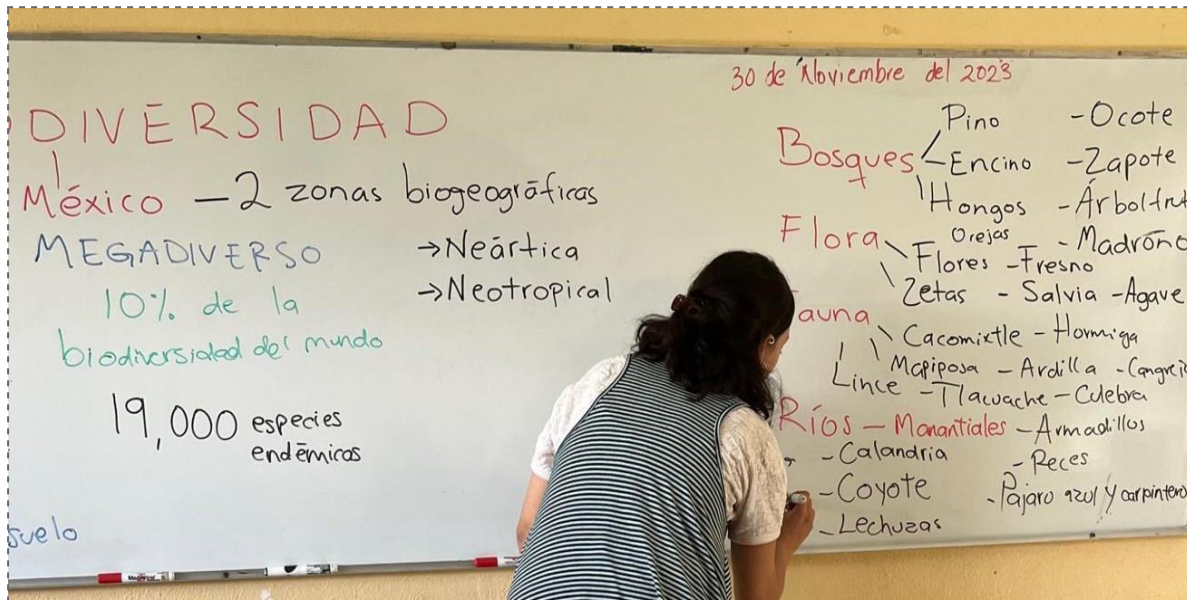 30 de Noviembre del 2023
DIVERSIDAD
México - 2 zonas biogeográficas
MEGADIVERSO
→Neártica
→Neotropical
10% de la
biodiversidad del mundo
19,000 especies
endémicas
suelo
Bosques
Pino - Ocote
Encino - Zapote
Hongos - Árbol frut
Orejas - Madroño
Flora
Flores - Fresno
Zetas - Salvia - Agave
auna
Cacomixtle - Hormiga
Mapiposa - Ardilla - Cangrej
Lince - Tlacuache - Culebra
Ríos - Manantiales - Armadillos
- Calandria - Reces
- Coyote - Pájaro azul y carpintero
- Lechuzas